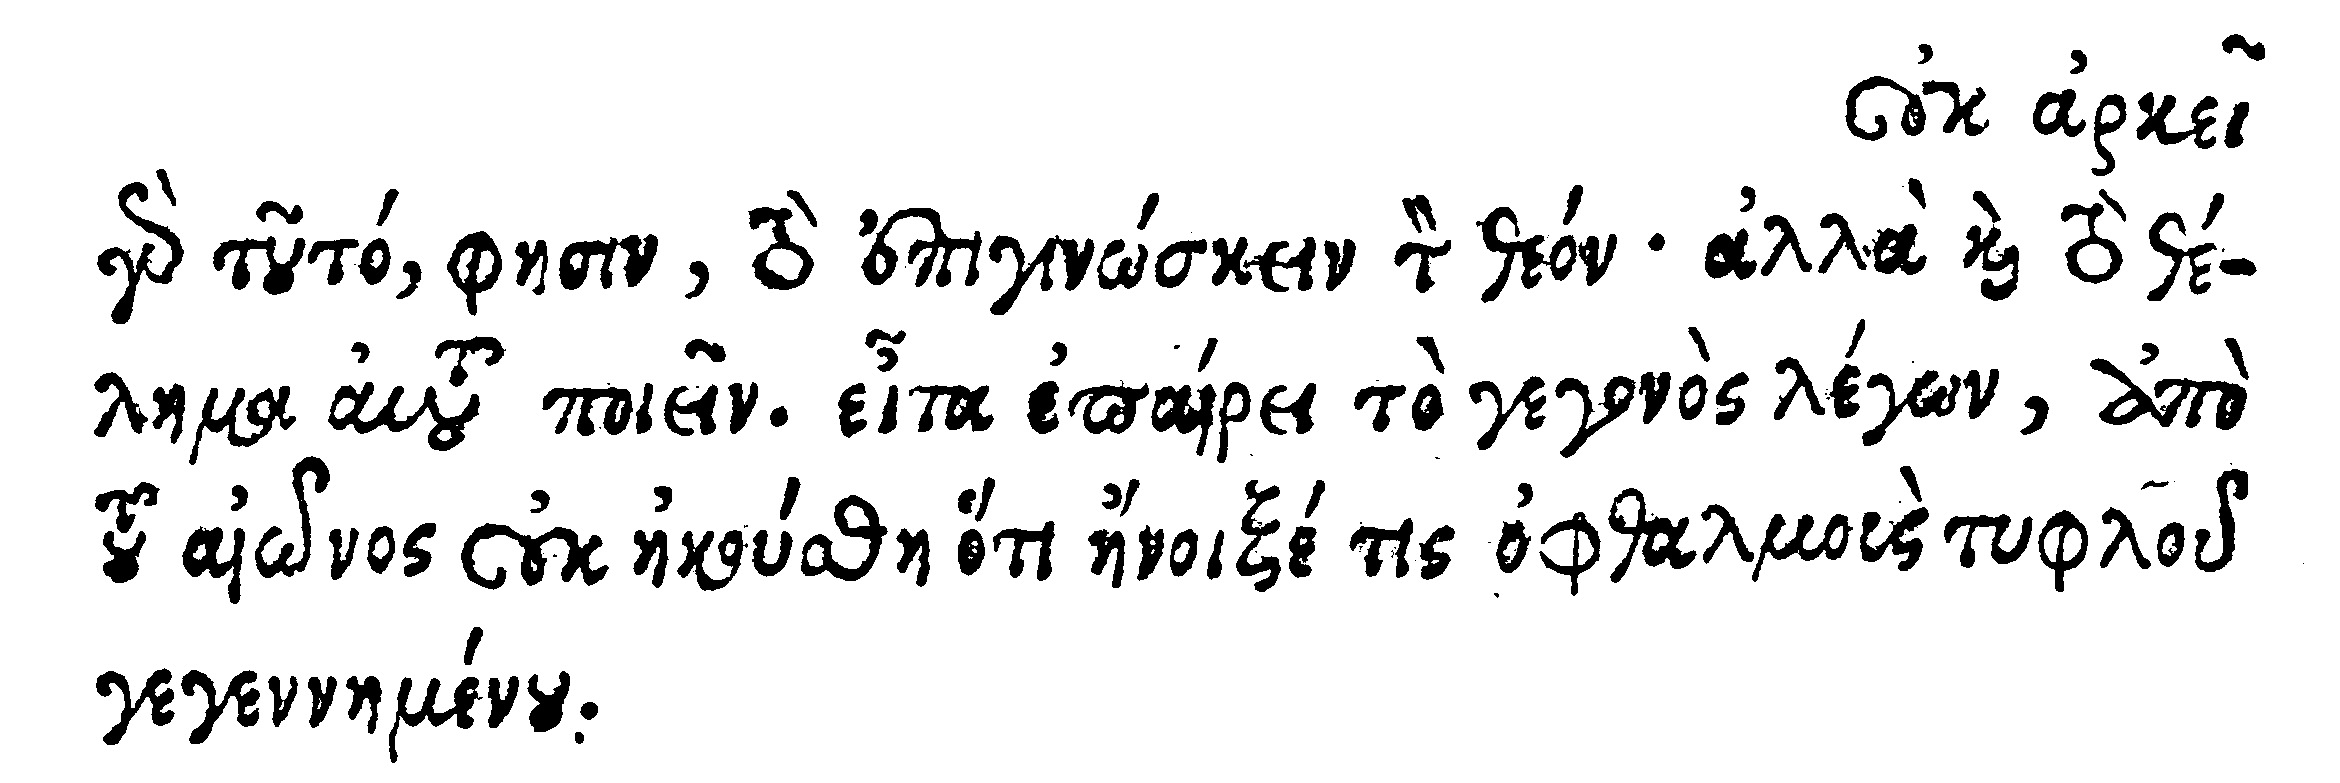 οὐκ ἀρκεῖ
γὰρ τοῦτό, φησιν, τὸ ἐπιγινώσκειν τὸν θεόν · ἀλλὰ καὶ τὸ θέ-
λημα αὐτοῦ ποιεῖν. εἶτα ἐπαίρει τὸ γεγονὸς λέγων, ἀπὸ
τοῦ αἰῶνος οὐκ ἠκούσθη ὅτι ἤνοιξέ τις ὀφθαλμοὺς τυφλοῦ
γεγεννημένου.